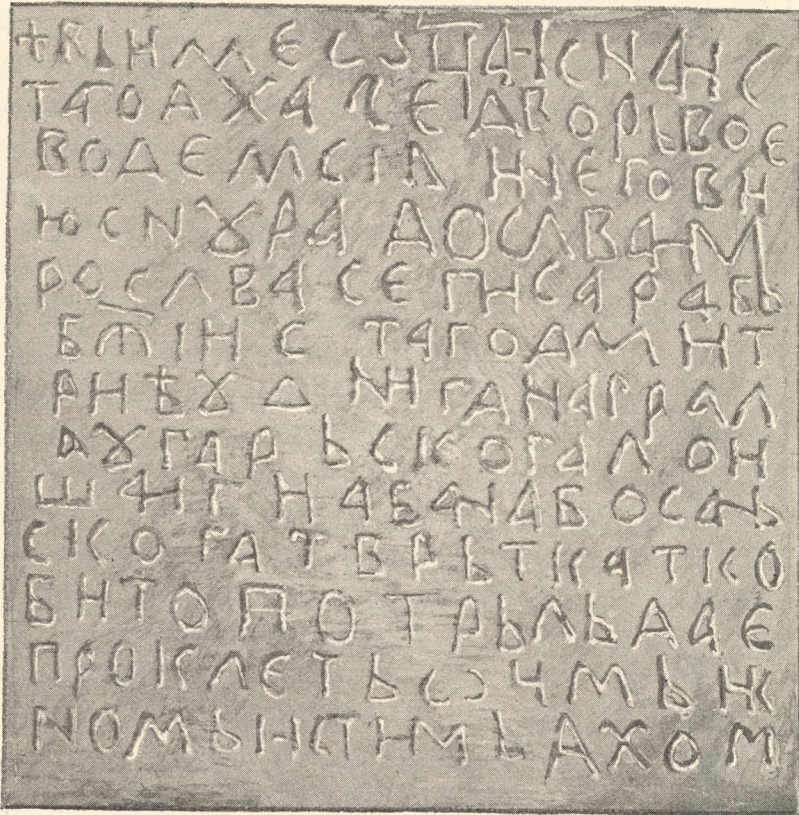 +ВЬИМЕѠЦАИСНАИС
ТАГОДХАСЕДВОРЬВОЕ
ВОДЕМСТАИНЕГОВИ
ЮСНꙋРАДОСЛВАМ
РОСЛВАСЕПИСАРАБЬ
БЖІИСТАГОДМИТ
РИѢꙋДНИГАНАГРРАЛ
АꙋГАРЬСКОГАЛОИ
ШАИГИАБАНАБОСАНЬ
СКОГАТВРЬТКАТКО
БИТОПОТРЬЛЬДАЕ
ПРОКЛЕТЬѠЧМЬИС
НОМЬИСТИМЬДХОМ